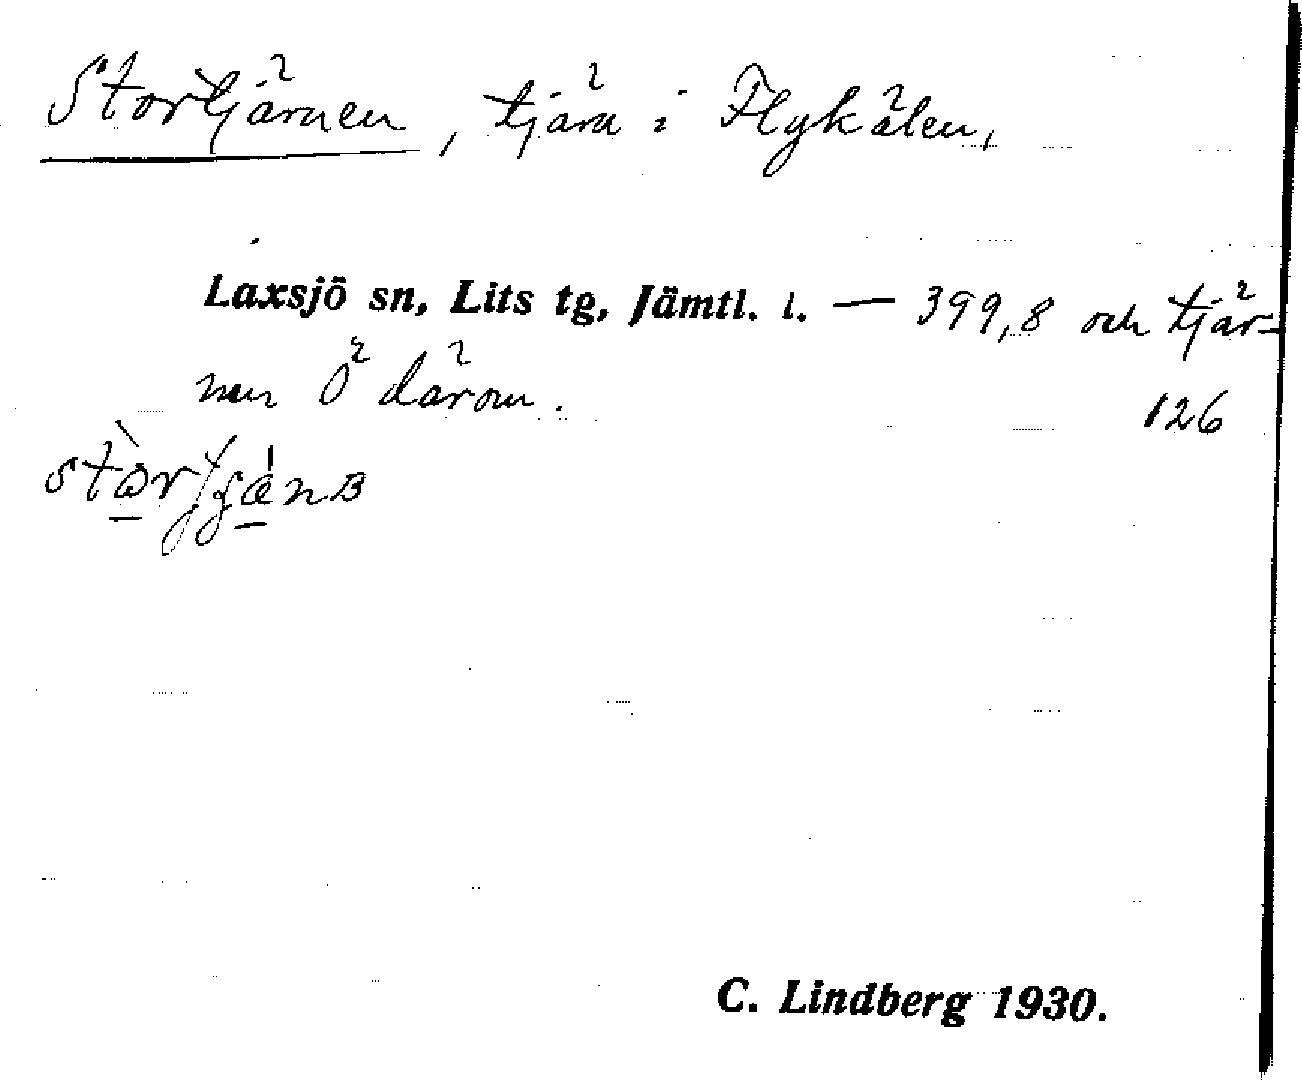 Stortjärnen, tjärn i Flykälen,
Laxsjö sn, Lits tg, Jämtl. l. — 399,8 och tjär-
nen Ö därom.
126
C. Lindberg 1930.